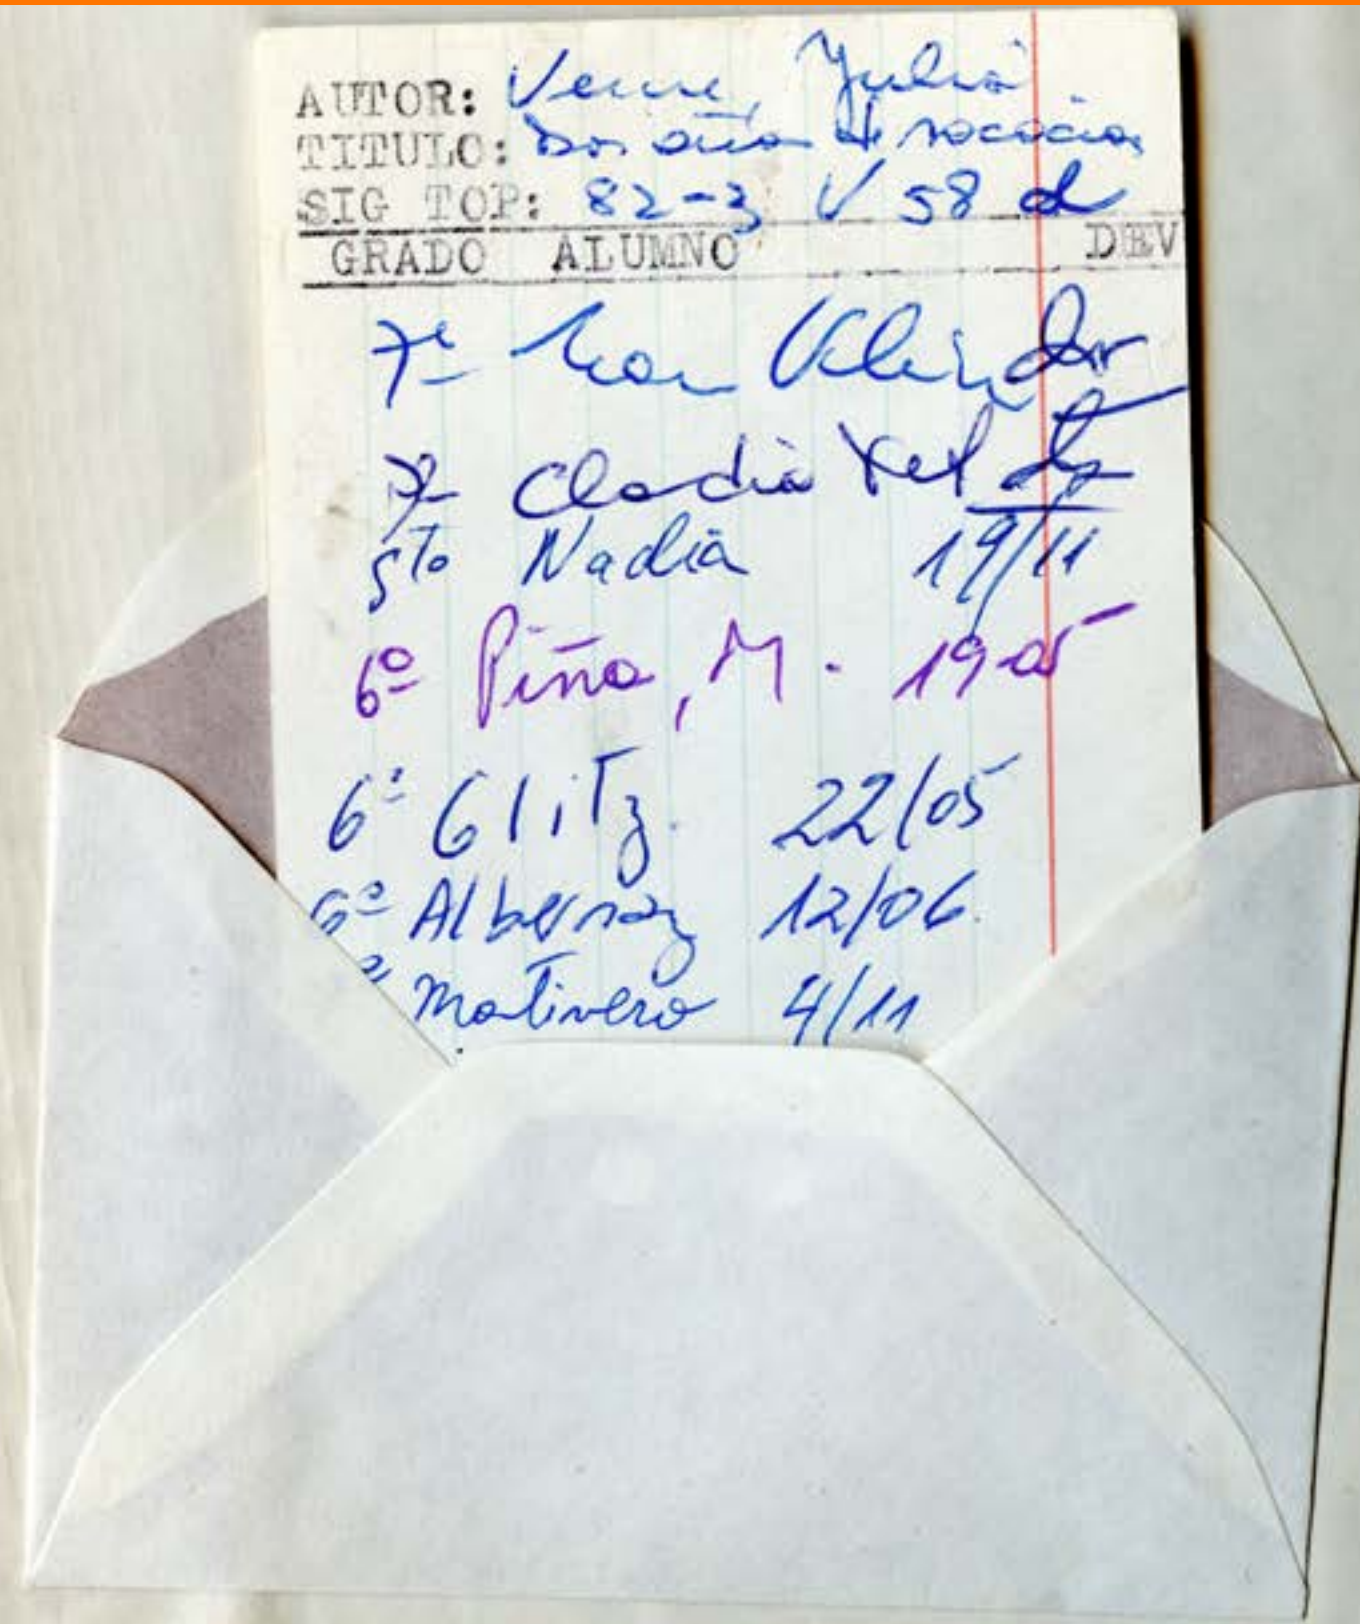 AUTOR: Verne, Julio
TITULO: Dos años de vacacion
SIG TOP: 82-3 V 58 d
GRADO ALUMNO DEV
7º
7º Claudia
5to Nadia 19/11
6º Piño, M. 19-05
6º Glitz. 22/05
6º Albernaz 12/06
Mativero 4/11